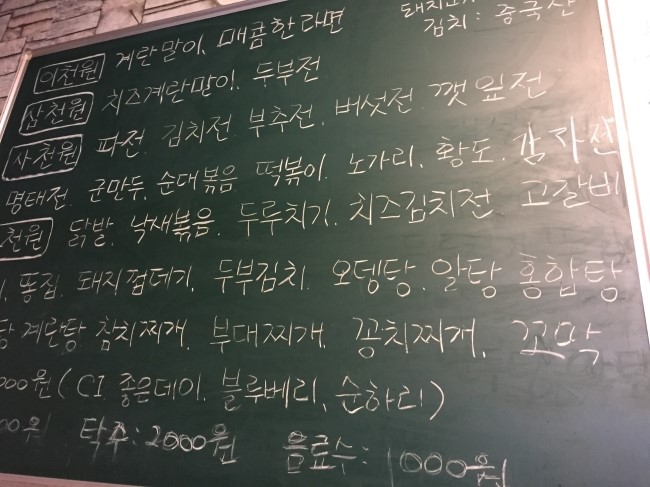 김치: 중국산
이천원 계란말이, 매콤한라면
삼천원 치즈계란말이, 두부전
사천원 파전, 김치전, 부추전, 버섯전, 깻잎전
명태전, 군만두, 순대볶음, 떡볶이, 노가리, 황도, 감자전
천원 닭발, 낙새볶음, 두루치기, 치즈김치전, 고갈비
똥집, 돼지껍데기, 두부김치, 오뎅탕, 알탕, 홍합탕
계란탕, 참치찌개, 부대찌개, 꽁치찌개, 꼬막
000원 (C1, 좋은데이, 블루베리, 순하리)
00원 탁주: 2000원 음료수: 1000원